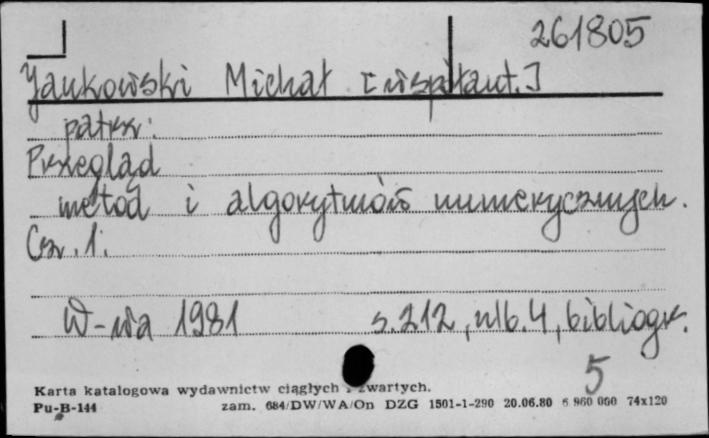 261805
Jankowski Michał [współaut.]
patrz:
Przegląd
metod i algorytmów numerycznych.
Cz. 1.
W-wa 1981 s. 212, nlb. 4, bibliogr.
5
Karta katalogowa wydawnictw ciągłych i zwartych.
Pu-B-144 zam. 684/DW/WA/On DZG 1501-1-290 20.06.80 6 960 000 74x120